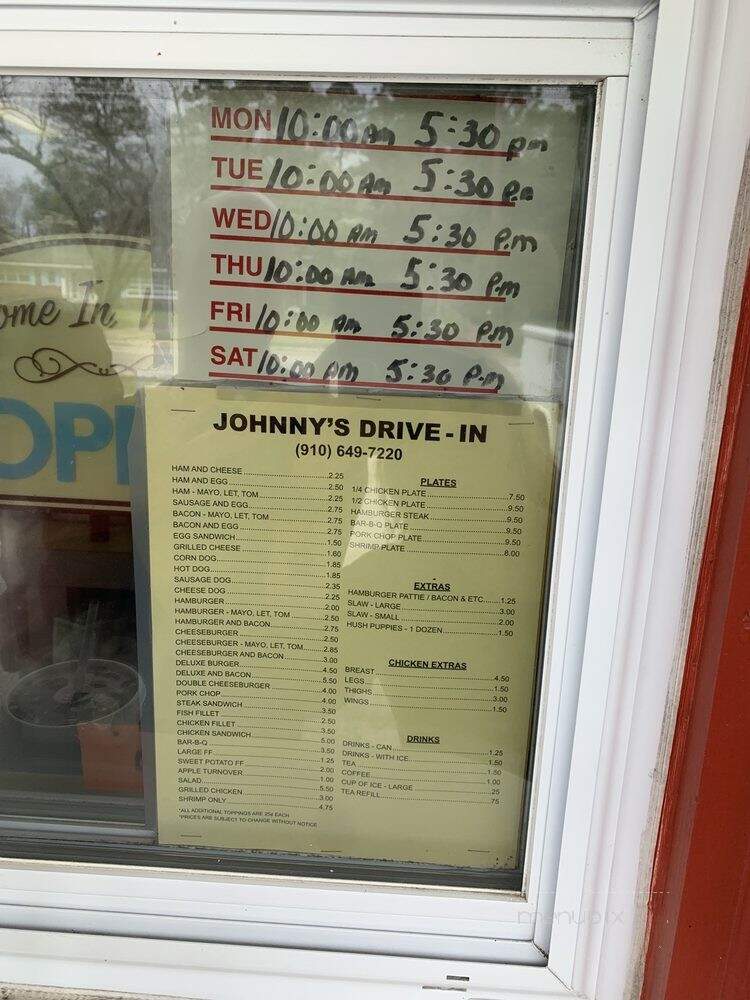 MON 10:00 Am 5:30 pm
TUE 10:00 Am 5:30 Pm
WED 10:00 AM 5:30 P.m
THU 10:00 Am 5:30 Pm
FRI 10:00 Am 5:30 Pm
SAT 10:00 AM 5:30 P.m
ome In,
OP
JOHNNY'S DRIVE-IN
(910) 649-7220
HAM AND CHEESE 2.25
HAM AND EGG 2.50
HAM - MAYO, LET, TOM 2.25
SAUSAGE AND EGG 2.75
BACON - MAYO, LET, TOM 2.75
BACON AND EGG 2.75
EGG SANDWICH 1.50
GRILLED CHEESE 1.60
CORN DOG 1.85
HOT DOG 1.85
SAUSAGE DOG 2.35
CHEESE DOG 2.25
HAMBURGER 2.00
HAMBURGER - MAYO, LET, TOM 2.50
HAMBURGER AND BACON 2.75
CHEESEBURGER 2.50
CHEESEBURGER - MAYO, LET, TOM 2.85
CHEESEBURGER AND BACON 3.00
DELUXE BURGER 4.50
DELUXE AND BACON 5.50
DOUBLE CHEESEBURGER 4.00
PORK CHOP 4.00
STEAK SANDWICH 3.50
FISH FILLET 2.50
CHICKEN FILLET 3.50
CHICKEN SANDWICH 5.00
BAR-B-Q 3.50
LARGE FF 1.25
SWEET POTATO FF 2.00
APPLE TURNOVER 1.00
SALAD 5.50
GRILLED CHICKEN 3.00
SHRIMP ONLY 4.75
*ALL ADDITIONAL TOPPINGS ARE 25¢ EACH
*PRICES ARE SUBJECT TO CHANGE WITHOUT NOTICE
PLATES
1/4 CHICKEN PLATE 7.50
1/2 CHICKEN PLATE 9.50
HAMBURGER STEAK 9.50
BAR-B-Q PLATE 9.50
PORK CHOP PLATE 9.50
SHRIMP PLATE 8.00
EXTRAS
HAMBURGER PATTIE / BACON & ETC. 1.25
SLAW - LARGE 3.00
SLAW - SMALL 2.00
HUSH PUPPIES - 1 DOZEN 1.50
CHICKEN EXTRAS
BREAST 4.50
LEGS 1.50
THIGHS 3.00
WINGS 1.50
DRINKS
DRINKS - CAN 1.25
DRINKS - WITH ICE 1.50
TEA 1.50
COFFEE 1.00
CUP OF ICE - LARGE .25
TEA REFILL .75
menupix